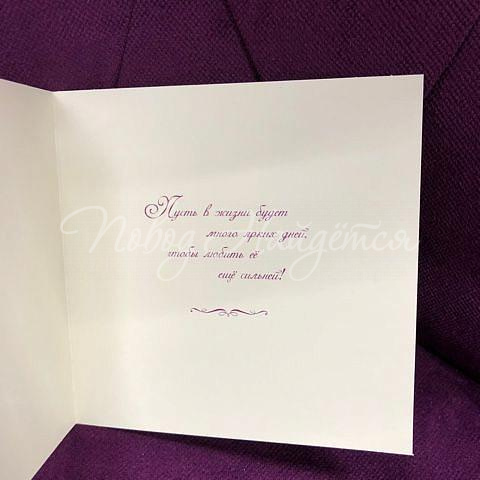 Пусть в жизни будет
много ярких дней,
чтобы любить её
ещё сильней!
Повод Найдётся